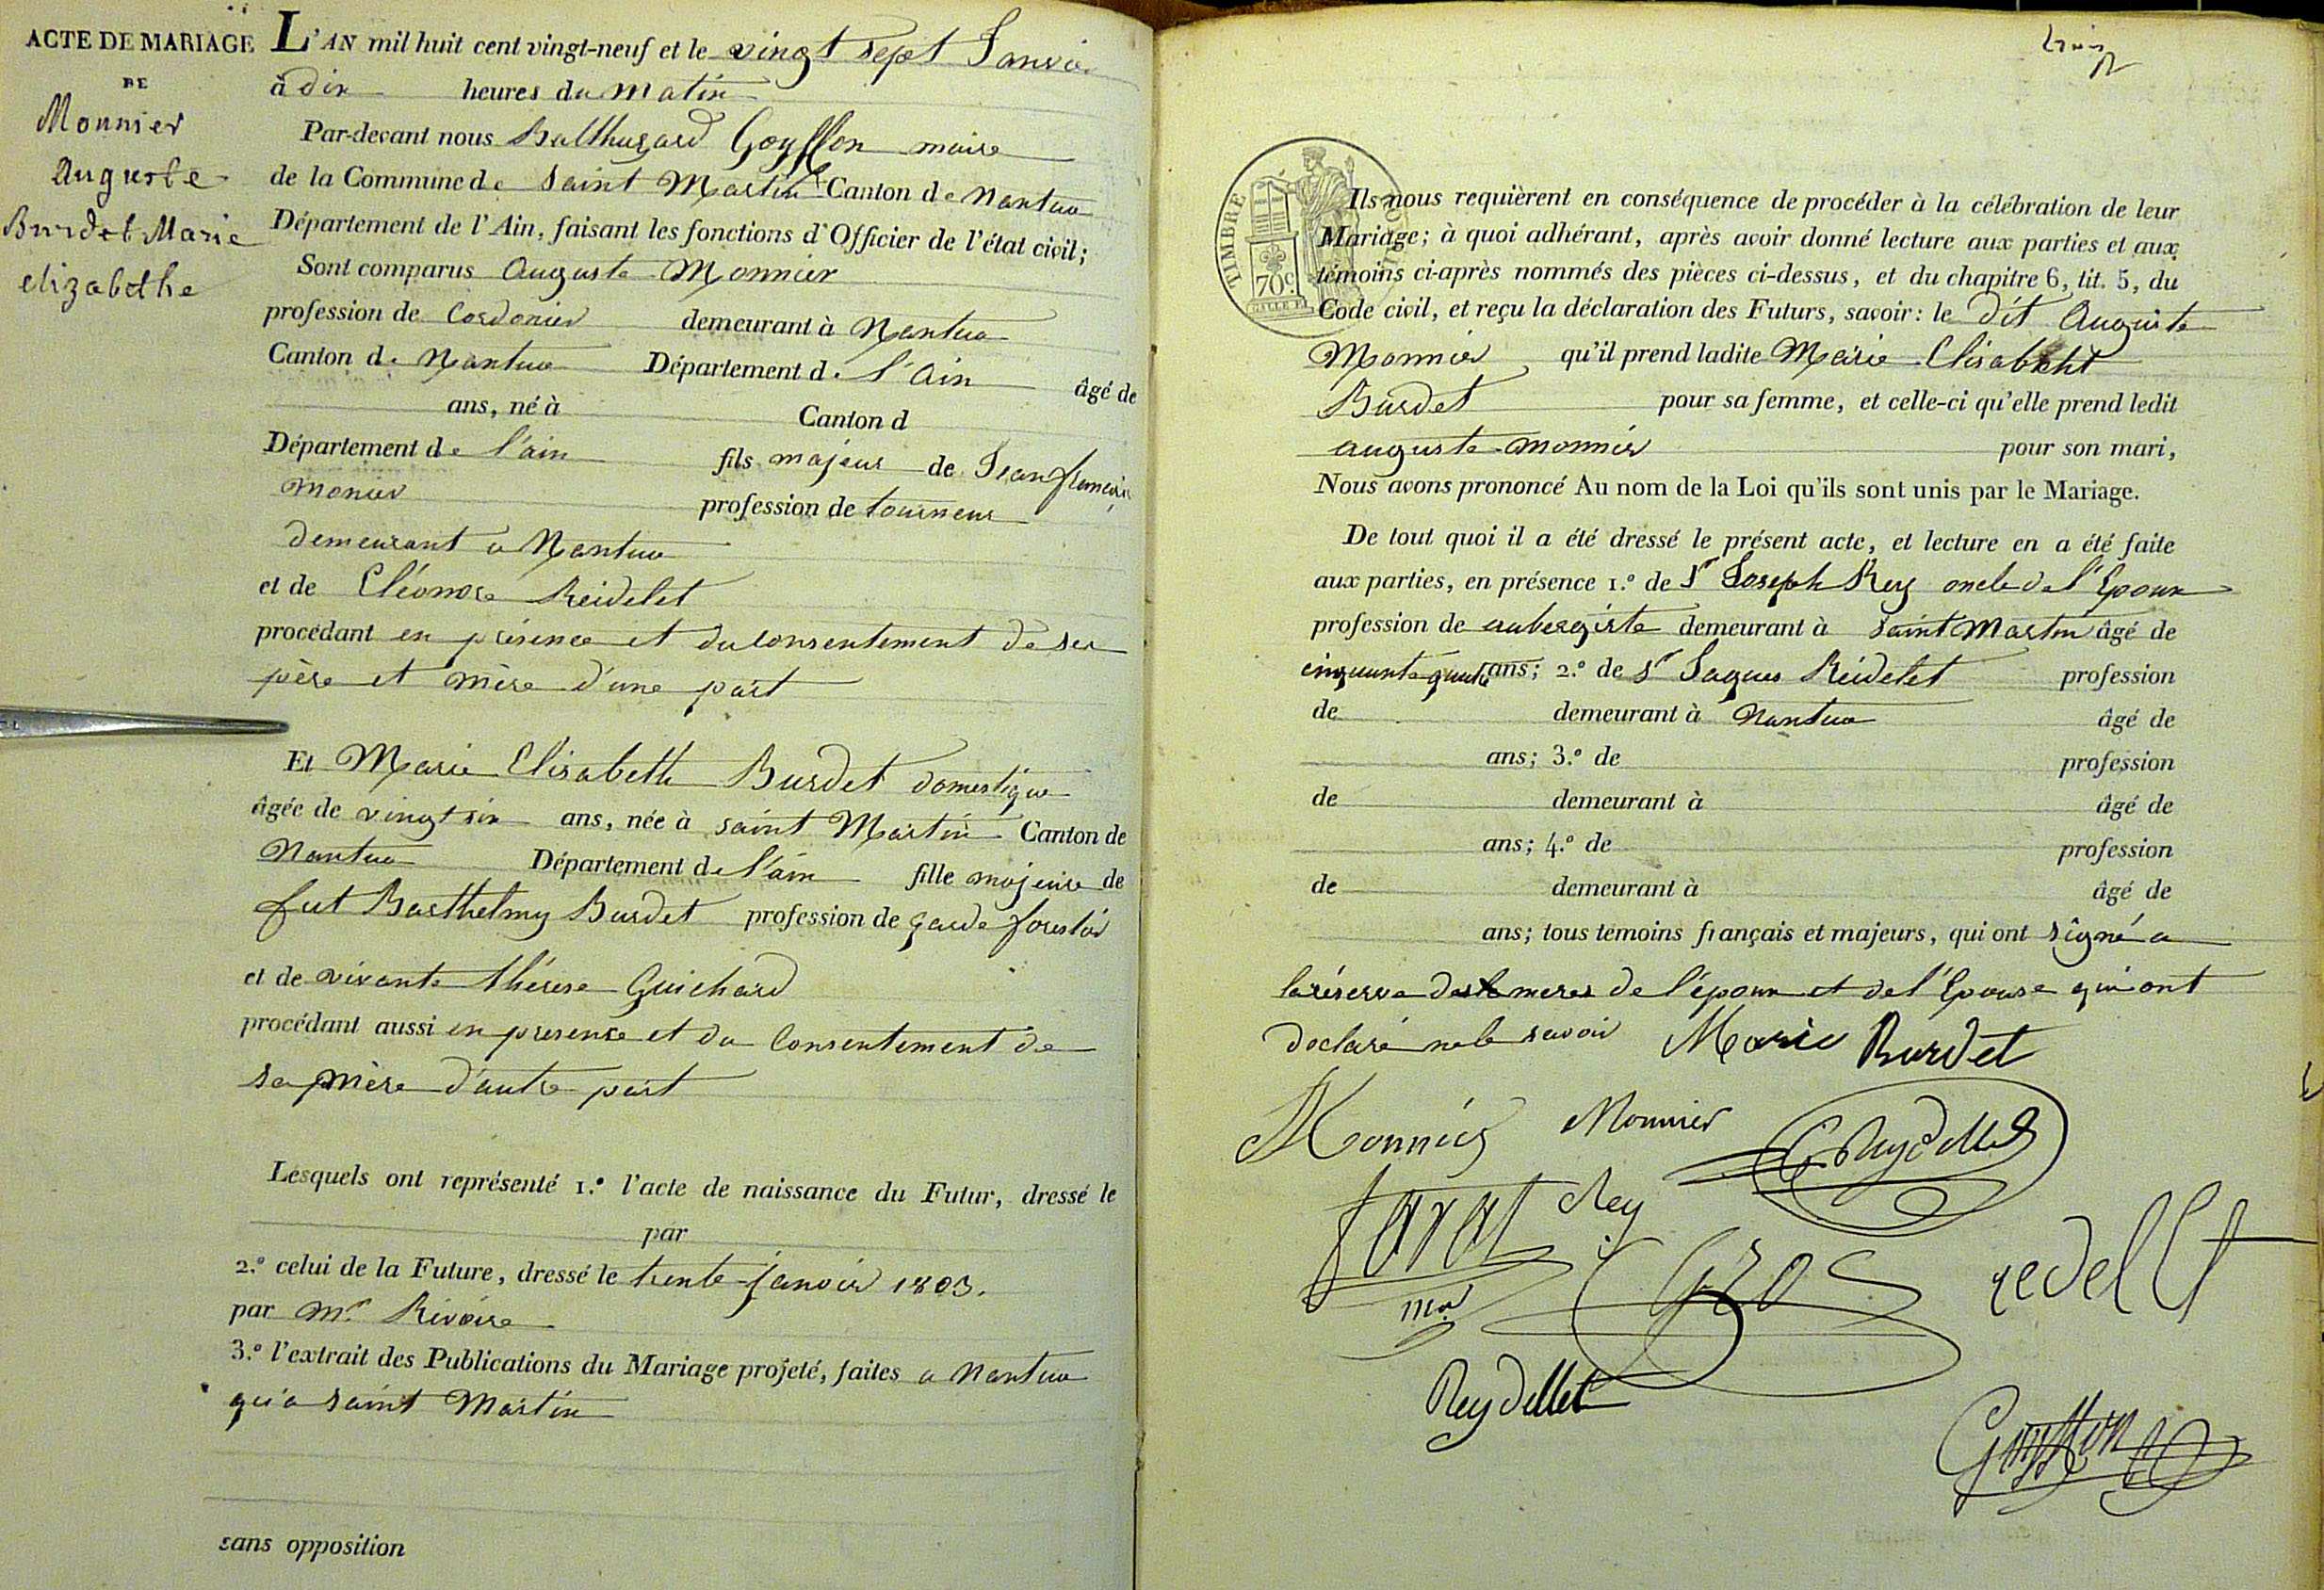 ACTE DE MARIAGE
DE
Monnier
Auguste
Burdet Marie
elizabethe
L'AN mil huit cent vingt-neuf et le vingt sept Janvier
à dix heures du matin
Par-devant nous Balthazard Gouffon maire
de la Commune de saint Martin Canton de Nantua
Département de l'Ain, faisant les fonctions d'Officier de l'état civil;
Sont comparus Auguste Monnier
profession de Cordonier demeurant à Nantua
Canton de Nantua Département de l'Ain âgé de
ans, né à Canton d
Département de l'ain fils majeur de Jean
monier profession de tourneur
demeurant a Nantua
et de Eléonore Reidelet
procédant en présence et du consentement de ses
père et mère d'une part
Et Marie Elisabeth Burdet domestique
âgée de vingt six ans, née à saint Martin Canton de
Nantua Département de l'ain fille majeure de
fut Barthelmy Burdet profession de garde forestier
et de vivante thérese Guichard
procédant aussi en presence et du Consentement de
sa mère d'autre part
Lesquels ont représenté 1.º l'acte de naissance du Futur, dressé le
par
2.º celui de la Future, dressé le trente janvier 1803.
par Mr. Rivoire
3.º l'extrait des Publications du Mariage projeté, faites a Nantua
qu'a saint Martin
sans opposition
TIMBRE
70c.
Ils nous requièrent en conséquence de procéder à la célébration de leur
Mariage; à quoi adhérant, après avoir donné lecture aux parties et aux
témoins ci-après nommés des pièces ci-dessus, et du chapitre 6, tit. 5, du
Code civil, et reçu la déclaration des Futurs, savoir: le dit Auguste
Monnier qu'il prend ladite Marie Elisabeht
Burdet pour sa femme, et celle-ci qu'elle prend ledit
auguste monnier pour son mari,
Nous avons prononcé Au nom de la Loi qu'ils sont unis par le Mariage.
De tout quoi il a été dressé le présent acte, et lecture en a été faite
aux parties, en présence 1.º de Sr Joseph Rey oncle de l'Epoux
profession de aubergiste demeurant à saint Martin âgé de
cinquante quatre ans; 2.º de Sr Jaques Reidelet profession
de demeurant à Nantua âgé de
ans; 3.º de profession
de demeurant à âgé de
ans; 4.º de profession
de demeurant à âgé de
ans; tous témoins français et majeurs, qui ont signé a
la réserve des meres de l'époux et de l'Epouse qui ont
declaré ne le savoir Marie Burdet
Monnier Monnier
Javat Rey
Gros redellet
Reydellet
Gouffon